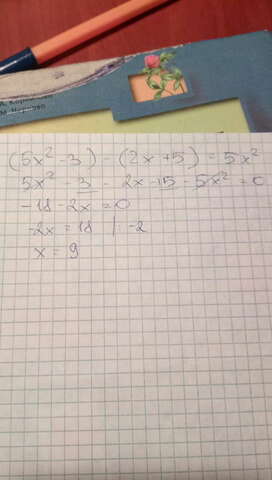 (5x² - 3) - (2x + 5) = 5x²
5x² - 3 - 2x - 15 - 5x² = 0
-18 - 2x = 0
-2x = 18 | -2
x = 9